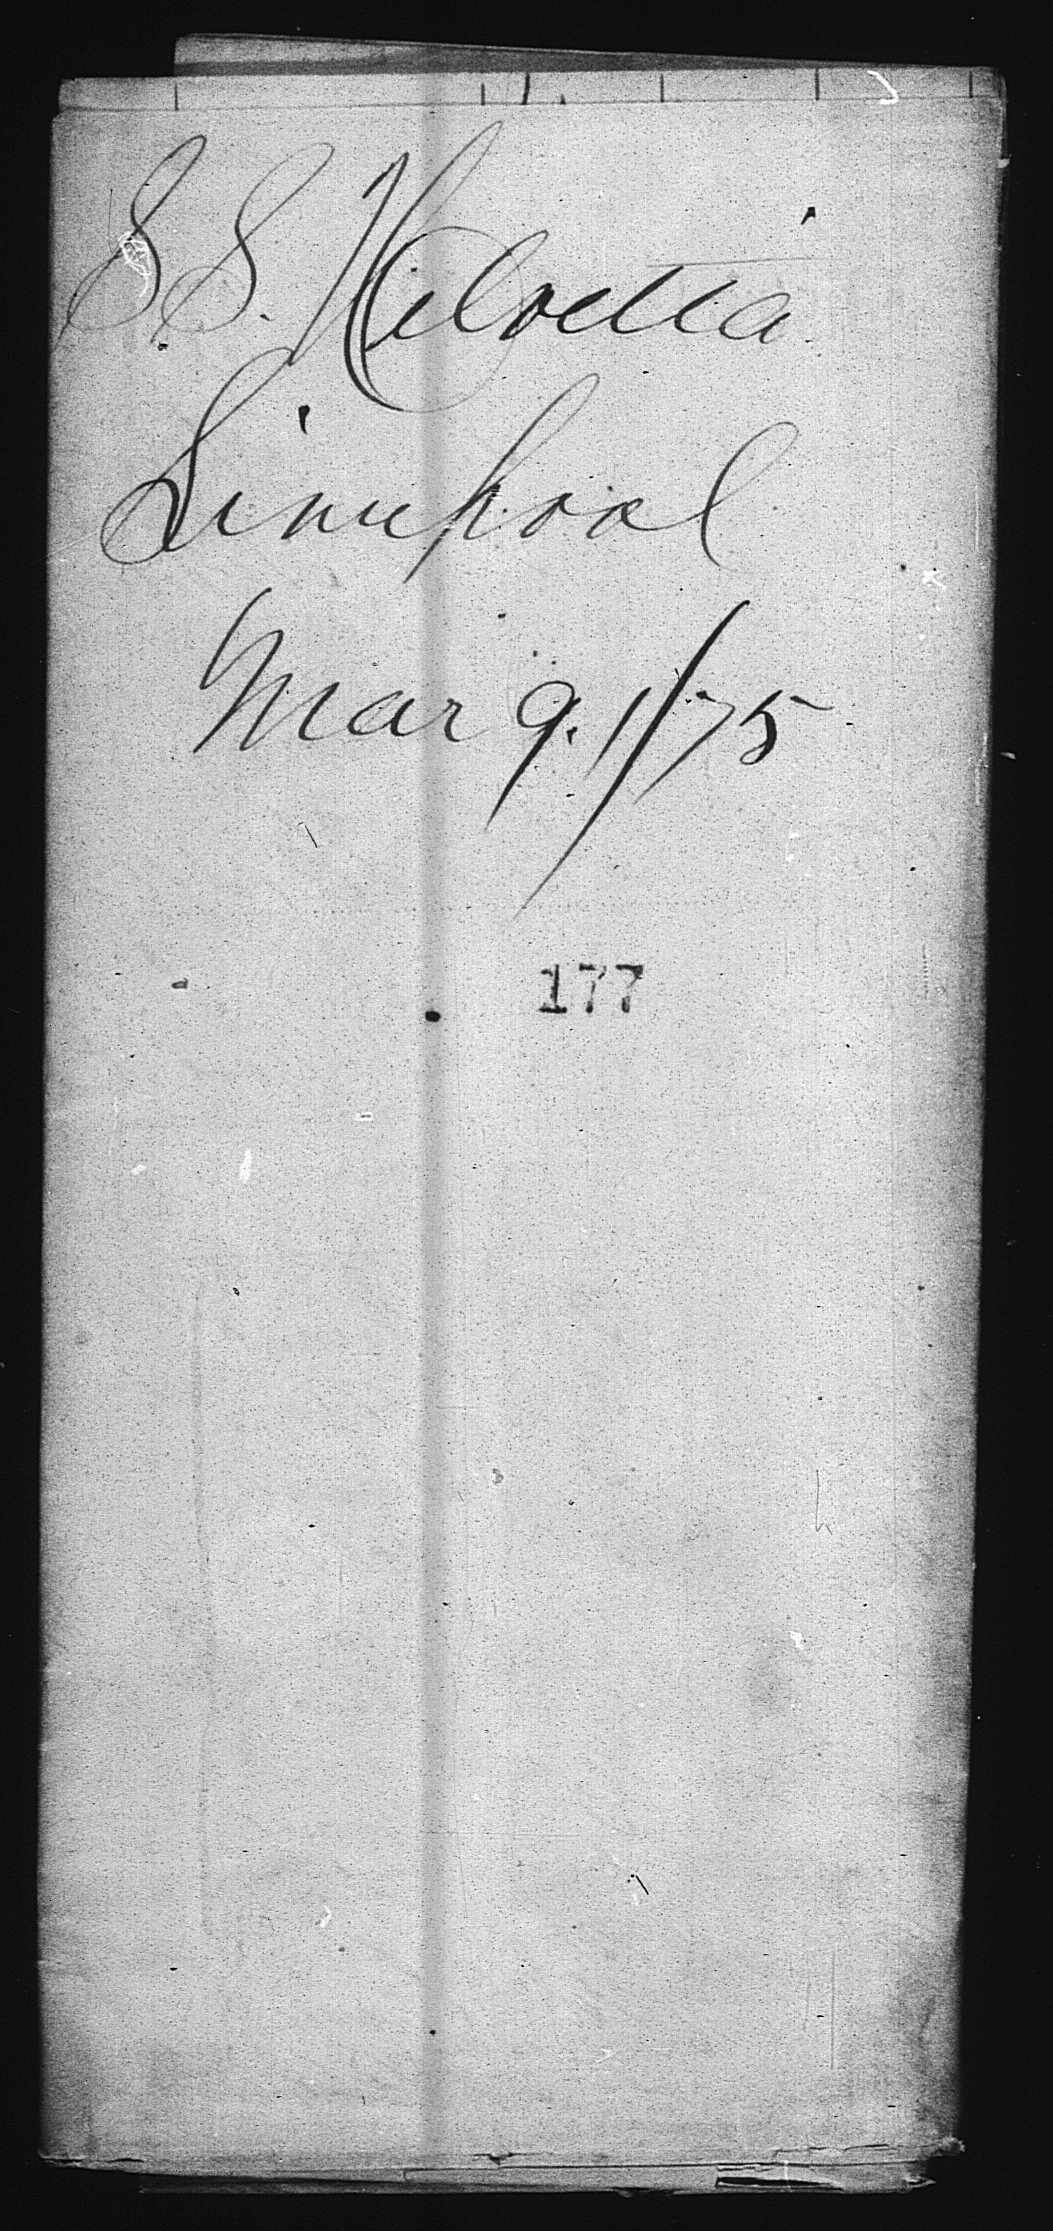 S.S. Helvetia
Liverpool
Mar 9. 1/75
177